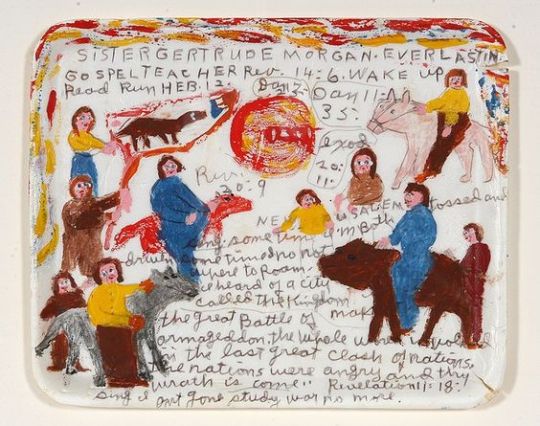 SISTER GERTRUDE MORGAN. EVERLASTIN
GOSPEL TEACHER Rev. 14:6. WAKE up
Read Run HEB. 12. Dan 7- Dan 11:
35:
exod
20:
11:
Rev:
20:9
NEW JERUSALEM tossed and
sing: some time I'm Both
driven some time do no not
where to Roam.
I've heard of a city
called the Kingdom
the great Battle of
armageddon. the whole world involved
in the last great clash of nations.
the nations were angry and thy
wrath is come.. Revelation 11:18:
sing I aint gone study war no more.